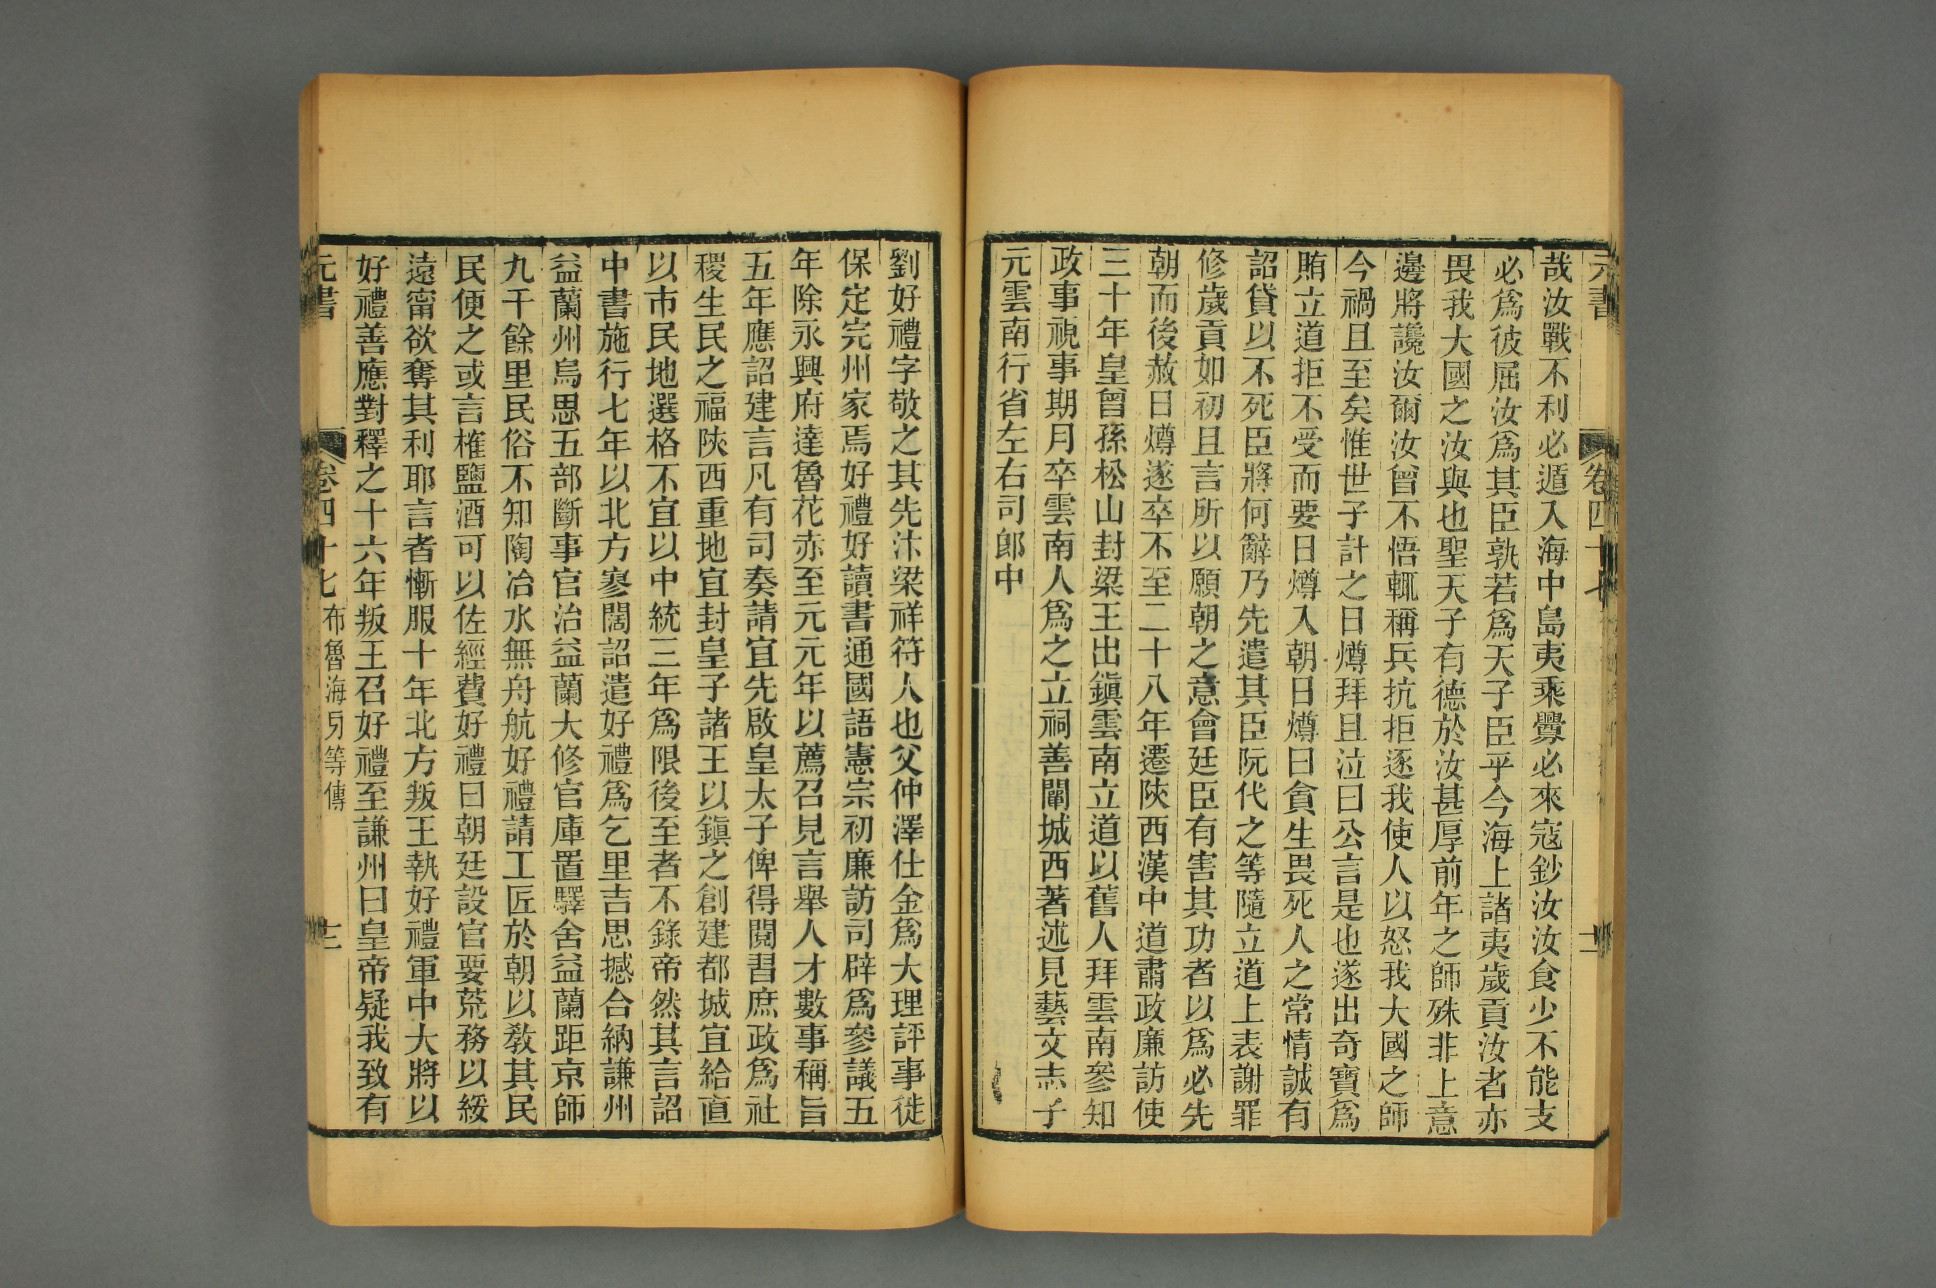 元書
卷四十七
哉汝戰不利必遁入海中島夷乘釁必來寇鈔汝汝食少不能支
必爲彼屈汝爲其臣孰若爲天子臣乎今海上諸夷歲貢汝者亦
畏我大國之汝與也聖天子有德於汝甚厚前年之師殊非上意
邊將讒汝爾汝曾不悟輒稱兵抗拒逐我使人以怒我大國之師
今禍且至矣惟世子計之日燇拜且泣曰公言是也遂出奇寶爲
賄立道拒不受而要日燇入朝日燇曰貪生畏死人之常情誠有
詔貸以不死臣將何辭乃先遣其臣阮代之等隨立道上表謝罪
修歲貢如初且言所以願朝之意會廷臣有害其功者以爲必先
朝而後赦日燇遂卒不至二十八年遷陝西漢中道肅政廉訪使
三十年皇曾孫松山封梁王出鎭雲南立道以舊人拜雲南參知
政事視事期月卒雲南人爲之立祠善闡城西著述見藝文志子
元雲南行省左右司郎中
劉好禮字敬之其先汴梁祥符人也父仲澤仕金爲大理評事徙
保定完州家焉好禮好讀書通國語憲宗初廉訪司辟爲參議五
年除永興府達魯花赤至元元年以薦召見言舉人才數事稱旨
五年應詔建言凡有司奏請宜先啟皇太子俾得閱習庶政爲社
稷生民之福陝西重地宜封皇子諸王以鎭之創建都城宜給直
以市民地選格不宜以中統三年爲限後至者不錄帝然其言詔
中書施行七年以北方寥闊詔遣好禮爲乞里吉思撼合納謙州
益蘭州烏思五部斷事官治益蘭大修官庫置驛舍益蘭距京師
九千餘里民俗不知陶冶水無舟航好禮請工匠於朝以敎其民
民便之或言榷鹽酒可以佐經費好禮曰朝廷設官要荒務以綏
遠甯欲奪其利耶言者慚服十年北方叛王執好禮軍中大將以
好禮善應對釋之十六年叛王召好禮至謙州曰皇帝疑我致有
元書
卷四十七
布魯海牙等傳
十二